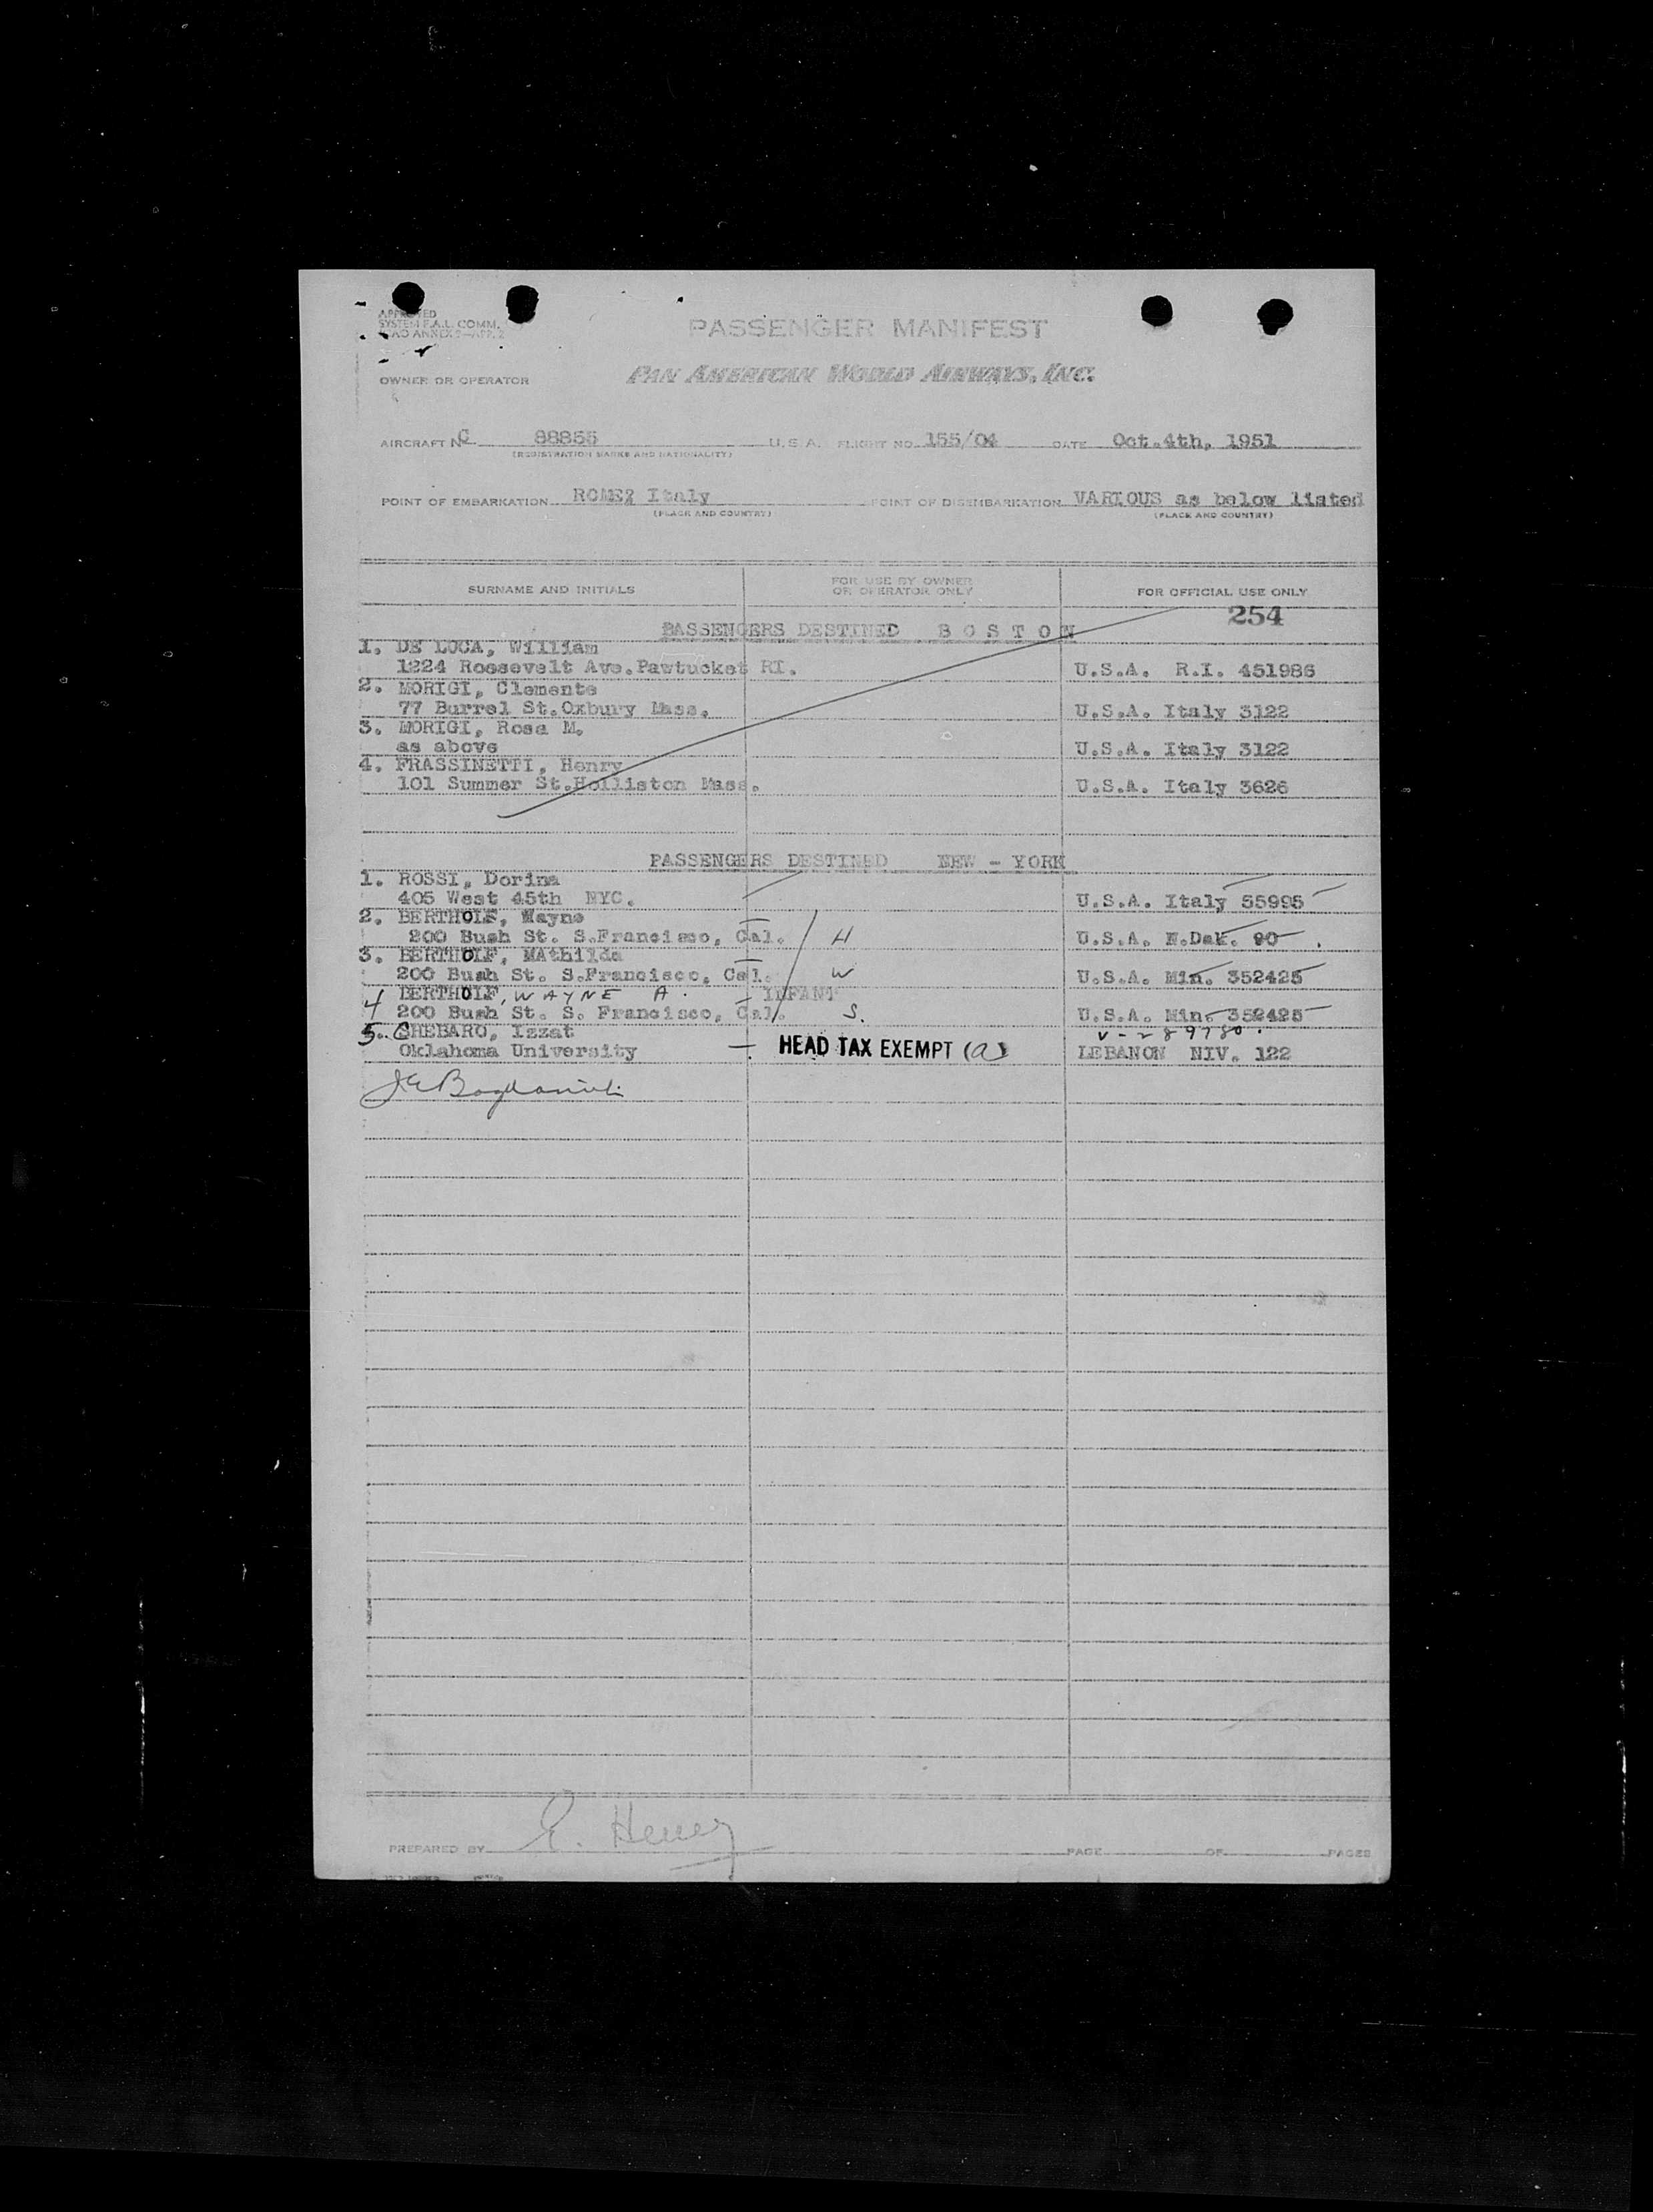 APPROVED
SYSTEM F.A.L. COMM.
PASSENGER MANIFEST
OWNER OR OPERATOR PAN AMERICAN WORLD AIRWAYS, INC.
AIRCRAFT NC 88855 U.S.A. FLIGHT NO. 155/04 DATE Oct.4th, 1951
(REGISTRATION MARKS AND NATIONALITY)
POINT OF EMBARKATION ROME, Italy POINT OF DISEMBARKATION VARIOUS as below listed
(PLACE AND COUNTRY) (PLACE AND COUNTRY)
SURNAME AND INITIALS FOR USE BY OWNER OR OPERATOR ONLY FOR OFFICIAL USE ONLY
254
PASSENGERS DESTINED B O S T O N
1. DE LUCA, William
1224 Roosevelt Ave.Pawtucket RI. U.S.A. R.I. 451986
2. MORIGI, Clemente
77 Burrel St.Oxbury Mass. U.S.A. Italy 3122
3. MORIGI, Rosa M.
as above U.S.A. Italy 3122
4. FRASSINETTI, Henry
101 Summer St.Holliston Mass. U.S.A. Italy 3626
PASSENGERS DESTINED NEW - YORK
1. ROSSI, Dorina
405 West 45th NYC. U.S.A. Italy 55995
2. BERTHOLF, Wayne
200 Bush St. S.Francisco, Cal. H U.S.A. N.Dak. 90
3. BERTHOLF, MAthilda
200 Bush St. S.Francisco, Cal. W U.S.A. Min. 352425
4 BERTHOLF, WAYNE A. INFANT
200 Bush St. S. Francisco, Cal. S. U.S.A. Min. 352425
5. CHEBARO, Izzat V-289780
Oklahoma University HEAD TAX EXEMPT (a) LEBANON NIV. 122
PREPARED BY E. Henez PAGE OF PAGES